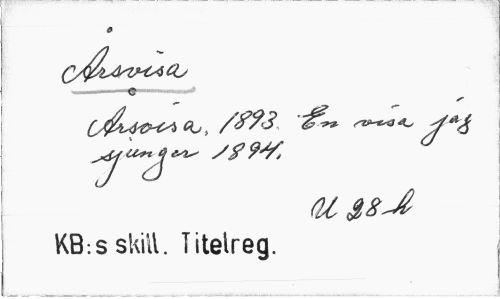 Årsvisa
Årsvisa, 1893. En visa jag
sjunger 1894.
U 28 h
KB:s skill. Titelreg.